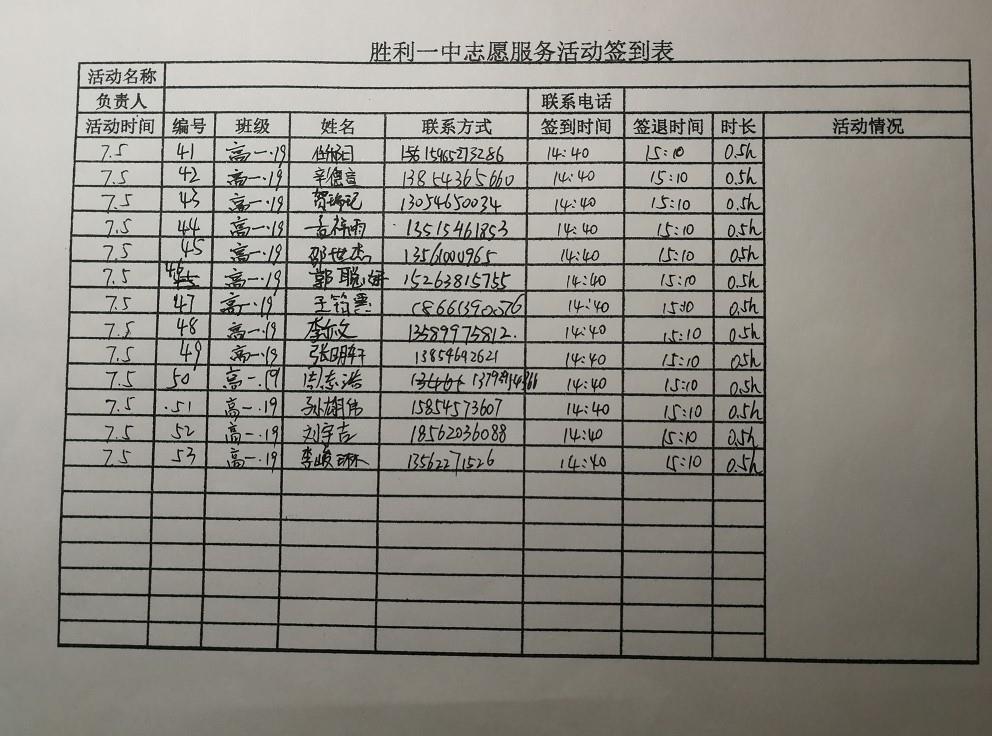 胜利一中志愿服务活动签到表
活动名称
负责人 联系电话
活动时间 编号 班级 姓名 联系方式 签到时间 签退时间 时长 活动情况
7.5 41 高一.19 15615465273286 14:40 15:10 0.5h
7.5 42 高一.19 13854365660 14:40 15:10 0.5h
7.5 43 高一.19 13054650034 14:40 15:10 0.5h
7.5 44 高一.19 孟祥雨 13515461853 14:40 15:10 0.5h
7.5 45 高一.19 邵世杰 13561000965 14:40 15:10 0.5h
7.5 46 高一.19 郭聪妍 15263815755 14:40 15:10 0.5h
7.5 47 高一.19 王筠惠 14:40 15:10 0.5h
7.5 48 高一.19 李亦文 13589975812. 14:40 15:10 0.5h
7.5 49 高一.19 张明轩 13854692621 14:40 15:10 0.5h
7.5 50 高一.19 周志浩 14:40 15:10 0.5h
7.5 51 高一.19 孙雄伟 15854573607 14:40 15:10 0.5h
7.5 52 高一.19 刘宇吉 18562036088 14:40 15:10 0.5h
7.5 53 高一.19 李峻琳 13562271526 14:40 15:10 0.5h